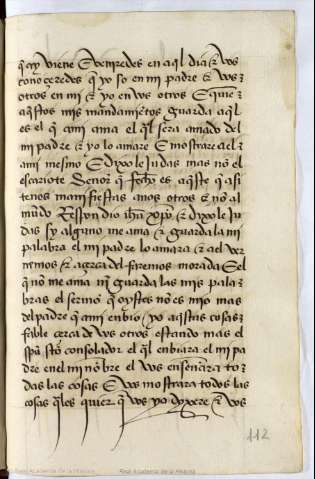 q̃ oy viene E veniredes en aq̃l dia & vos
conoçeredes q̃ yo so en mi padre & vos
otros en mi & yo en vos otros E quien
aq̃stos mis mandamientos guarda aq̃l
es el q̃ a mi ama el q̃l sera amado del
mi padre & yo lo amare E mostrare a el
a mi mesmo E dixo le Judas mas no el
escariote Señor q̃ fecho es aq̃ste q̃ asi
te nos manifiestas a nos otros & no al
mũdo Respondio ihũ xp̃o & dixo le Ju
das sy alguno me ama & guarda la mi
palabra el mi padre lo amara & a el ver
nemos & açerca del faremos morada E el
q̃ no me ama nĩ guarda las mis pala
bras el sermõ q̃ oystes no es mjo mas
del padre q̃ a mi enbio yo aq̃stas cosas
fable çerca de vos otros estando mas el
sp̃u stõ consolador el q̃l enbiara el mi pa
dre en el mi nõbre el vos enseñara to
das las cosas E vos mostrara todas las
cosas q̃les quier q̃ vos yo dyxere & vos
112
Real Academia de la Historia
Real Academia de la Historia